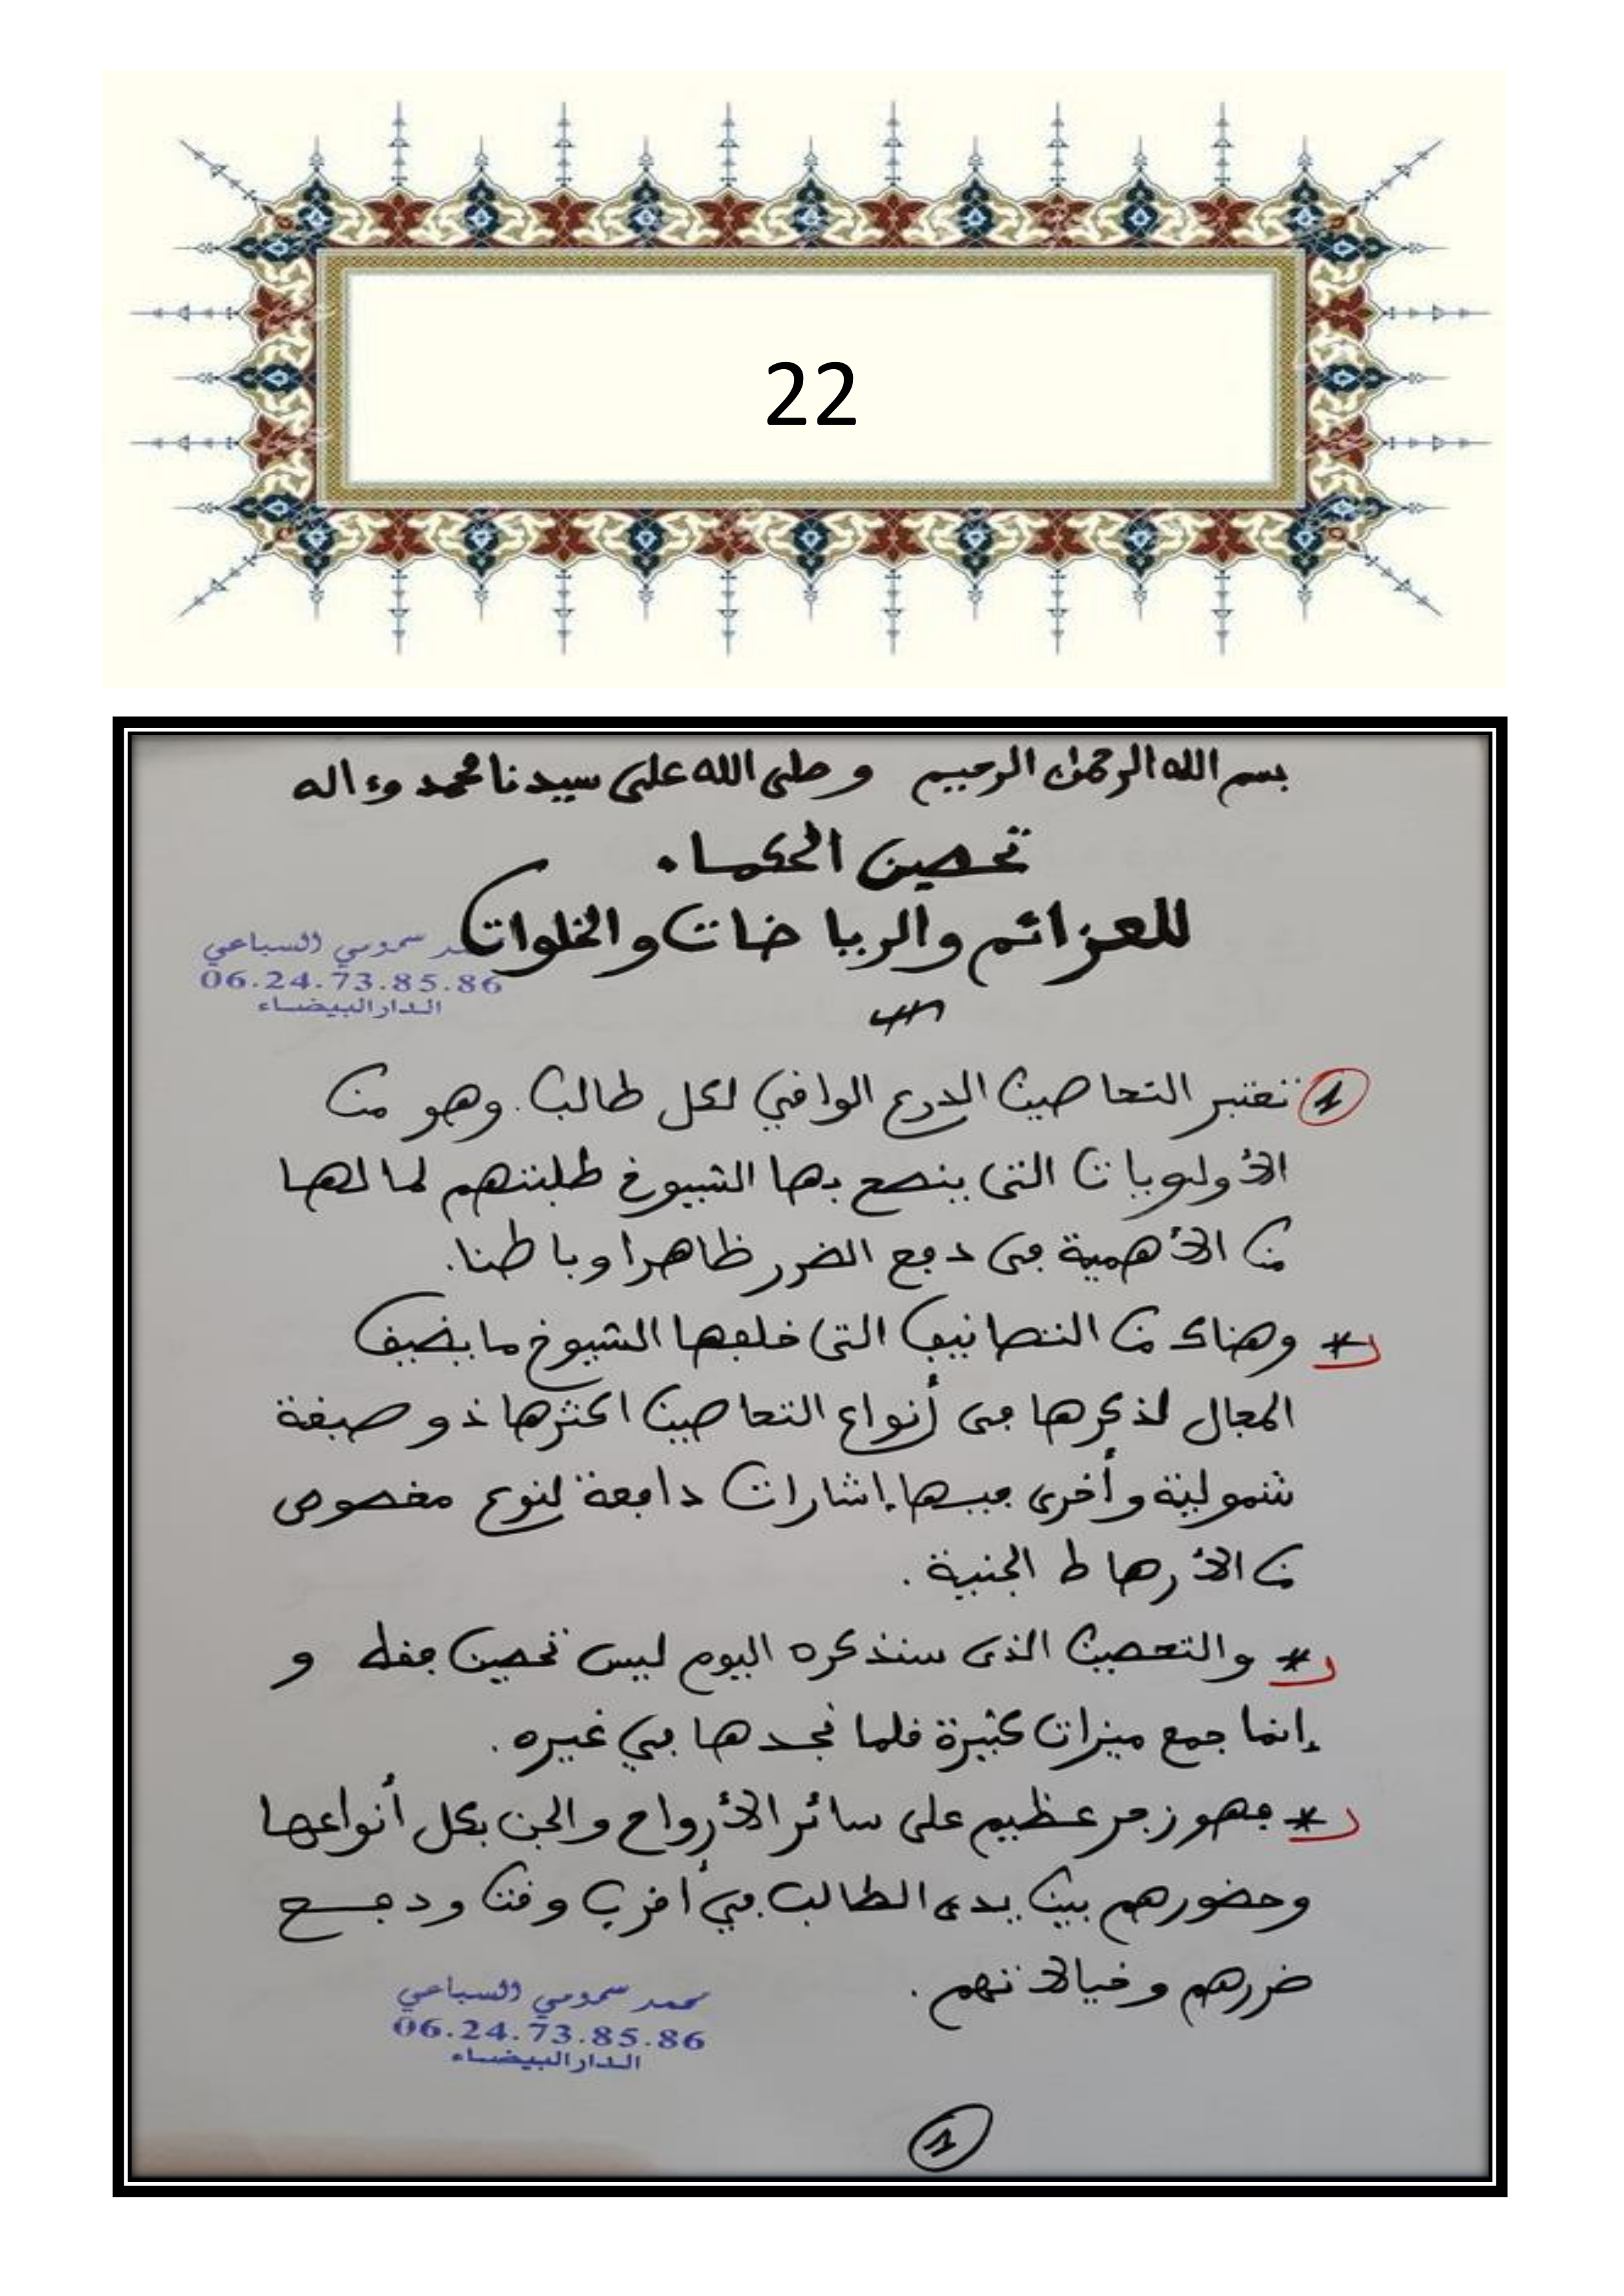 22
بسم الله الرحمن الرحيم وصلى الله على سيدنا محمد وءاله
تحصين الحكماء
للعزائم والرياضات والخلوات
سمومي السباعي
06.24.73.85.86
الدار البيضاء
1 تعتبر التحاصين الدرع الوافي لكل طالب. وهو من
الأولويات التي ينصح بها الشيوخ طلبتهم لما لها
من الأهمية في دفع الضرر ظاهرا وباطنا.
* وهناك من التصانيف التي خلفها الشيوخ ما يضيف
المجال لذكرها في أنواع التحاصين اكثرها ذو صبغة
شمولية وأخرى فيها إشارات دافعة لنوع مخصوص
من الأرهاط الجنية.
* والتحصين الذي سنذكره اليوم ليس تحصين فقط و
إنما جمع ميزات كثيرة قلما نجدها في غيره.
* فهو زجر عظيم على سائر الأرواح والجن بكل أنواعها
وحضورهم بين يدي الطالب في أقرب وقت ودفع
ضررهم وخيالاتهم.
محمد سمومي السباعي
06.24.73.85.86
الدار البيضاء
1